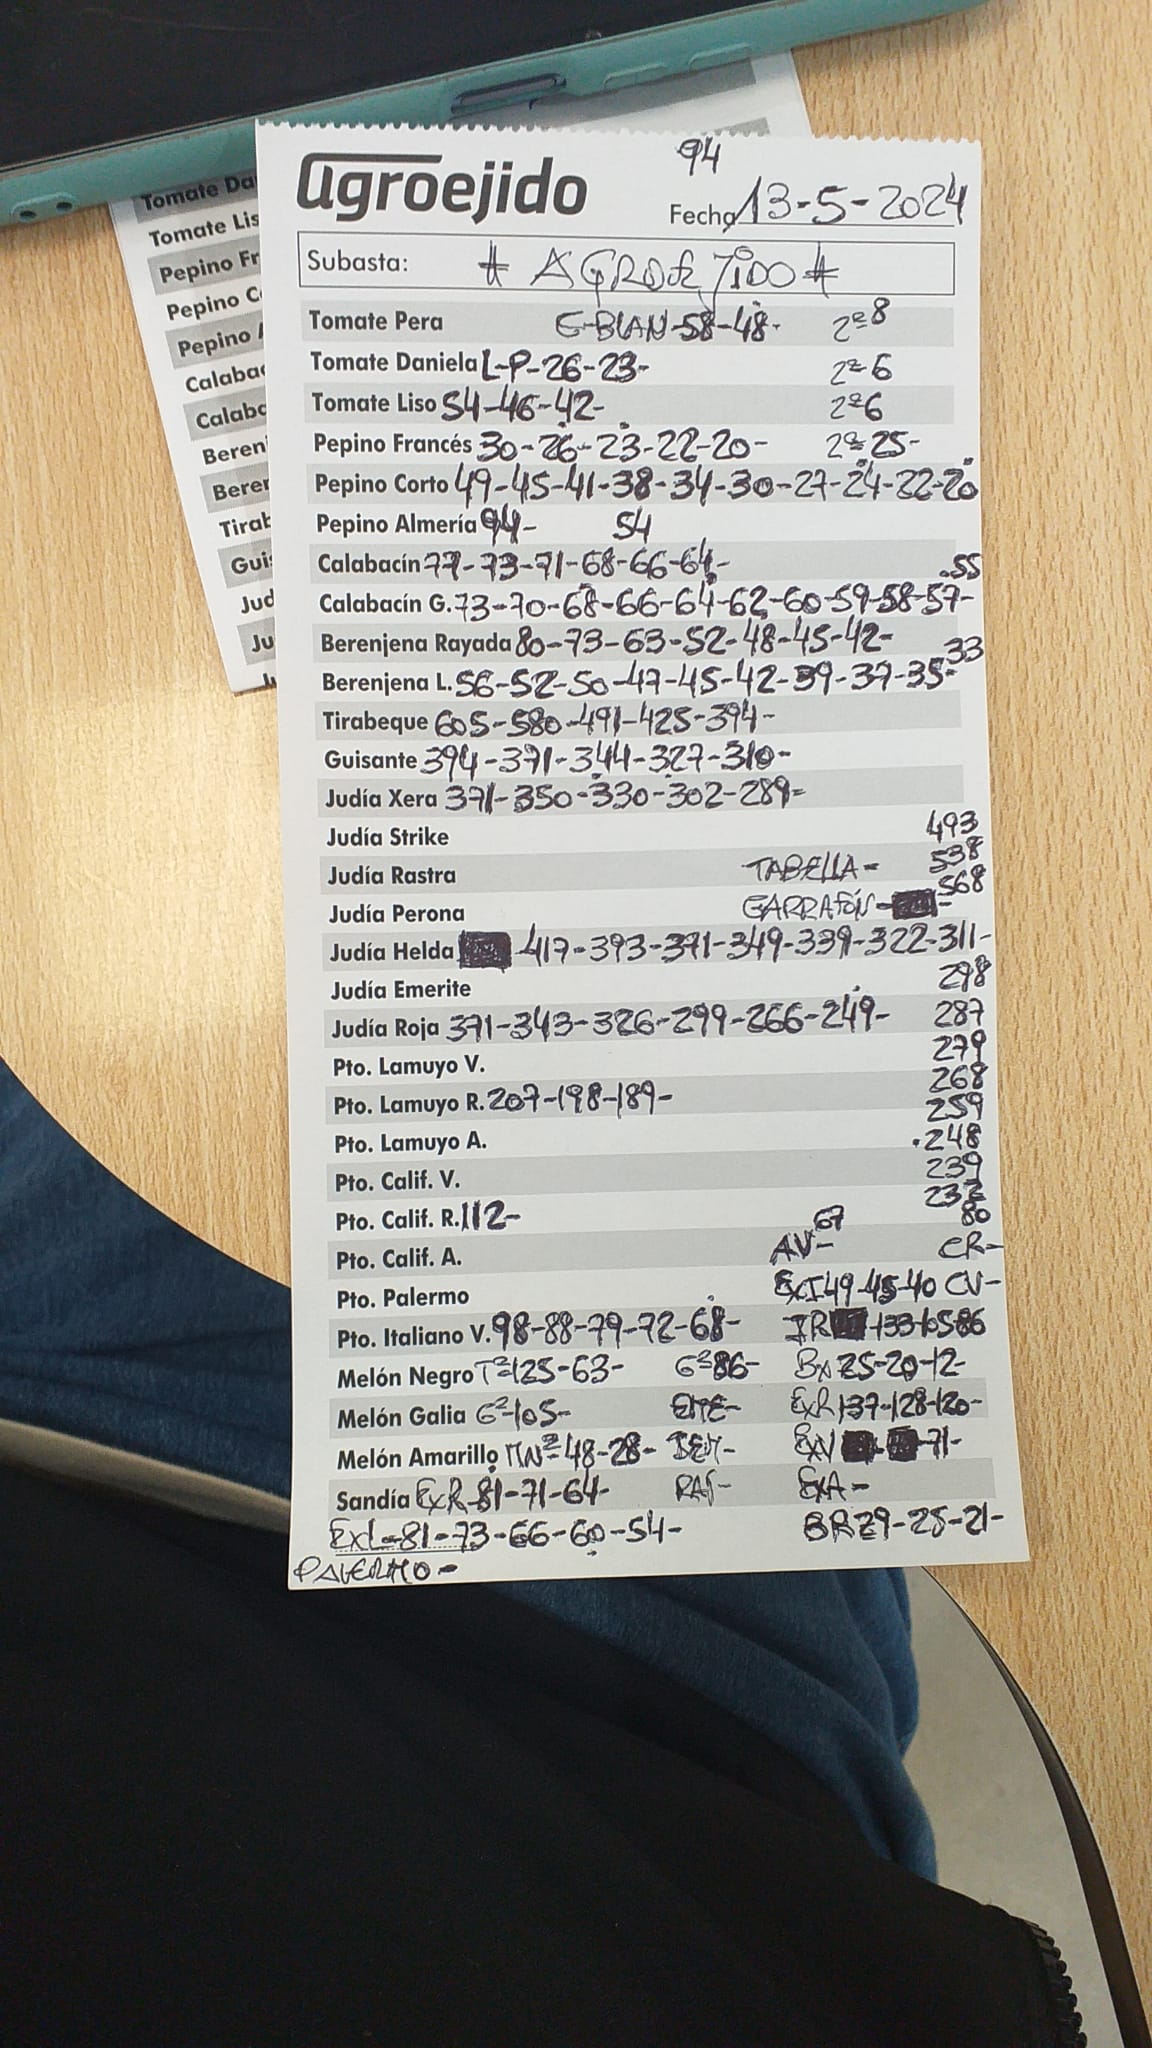 94
agroejido
Fecha 13-5-2024
Subasta: # AGROEJIDO #
Tomate Pera E-BLAN-58-48- 2ª8
Tomate Daniela L-P-26-23- 2ª6
Tomate Liso 54-46-42- 2ª6
Pepino Francés 30-26-23-22-20- 2ª25-
Pepino Corto 49-45-41-38-34-30-27-24-22-20
Pepino Almería 94- 54
Calabacín 77-73-71-68-66-64- .55
Calabacín G. 73-70-68-66-64-62-60-59-58-57-
Berenjena Rayada 80-73-63-52-48-45-42-
33
Berenjena L. 56-52-50-47-45-42-39-37-35-
Tirabeque 605-580-491-425-394-
Guisante 394-371-344-327-310-
Judía Xera 371-350-330-302-289=
Judía Strike 493
Judía Rastra TABELLA= 538
Judía Perona GARRAFÓN- 568
Judía Helda 417-393-371-349-339-322-311-
Judía Emerite 298
Judía Roja 371-343-326-299-266-249- 287
Pto. Lamuyo V. 279
Pto. Lamuyo R. 207-198-189- 268
259
Pto. Lamuyo A. .248
Pto. Calif. V. 239
232
Pto. Calif. R. 112- 67 80
Pto. Calif. A. AV- CR-
Pto. Palermo ExI 49-45-40 CV-
Pto. Italiano V. 98-88-79-72-68- IR 133-105-86
Melón Negro T²125-63- G²86- BA 25-20-12-
Melón Galia G²105- ExR 137-128-120-
Melón Amarillo MNª-48-28- ExV 71-
Sandía ExR-81-71-64- ExA-
ExL-81-73-66-60-54- BR 29-25-21-
PALERMO-
Tomate Da
Tomate Lis
Pepino Fr
Pepino C
Pepino A
Calabac
Calabc
Beren
Berer
Tirab
Guis
Jud
Ju